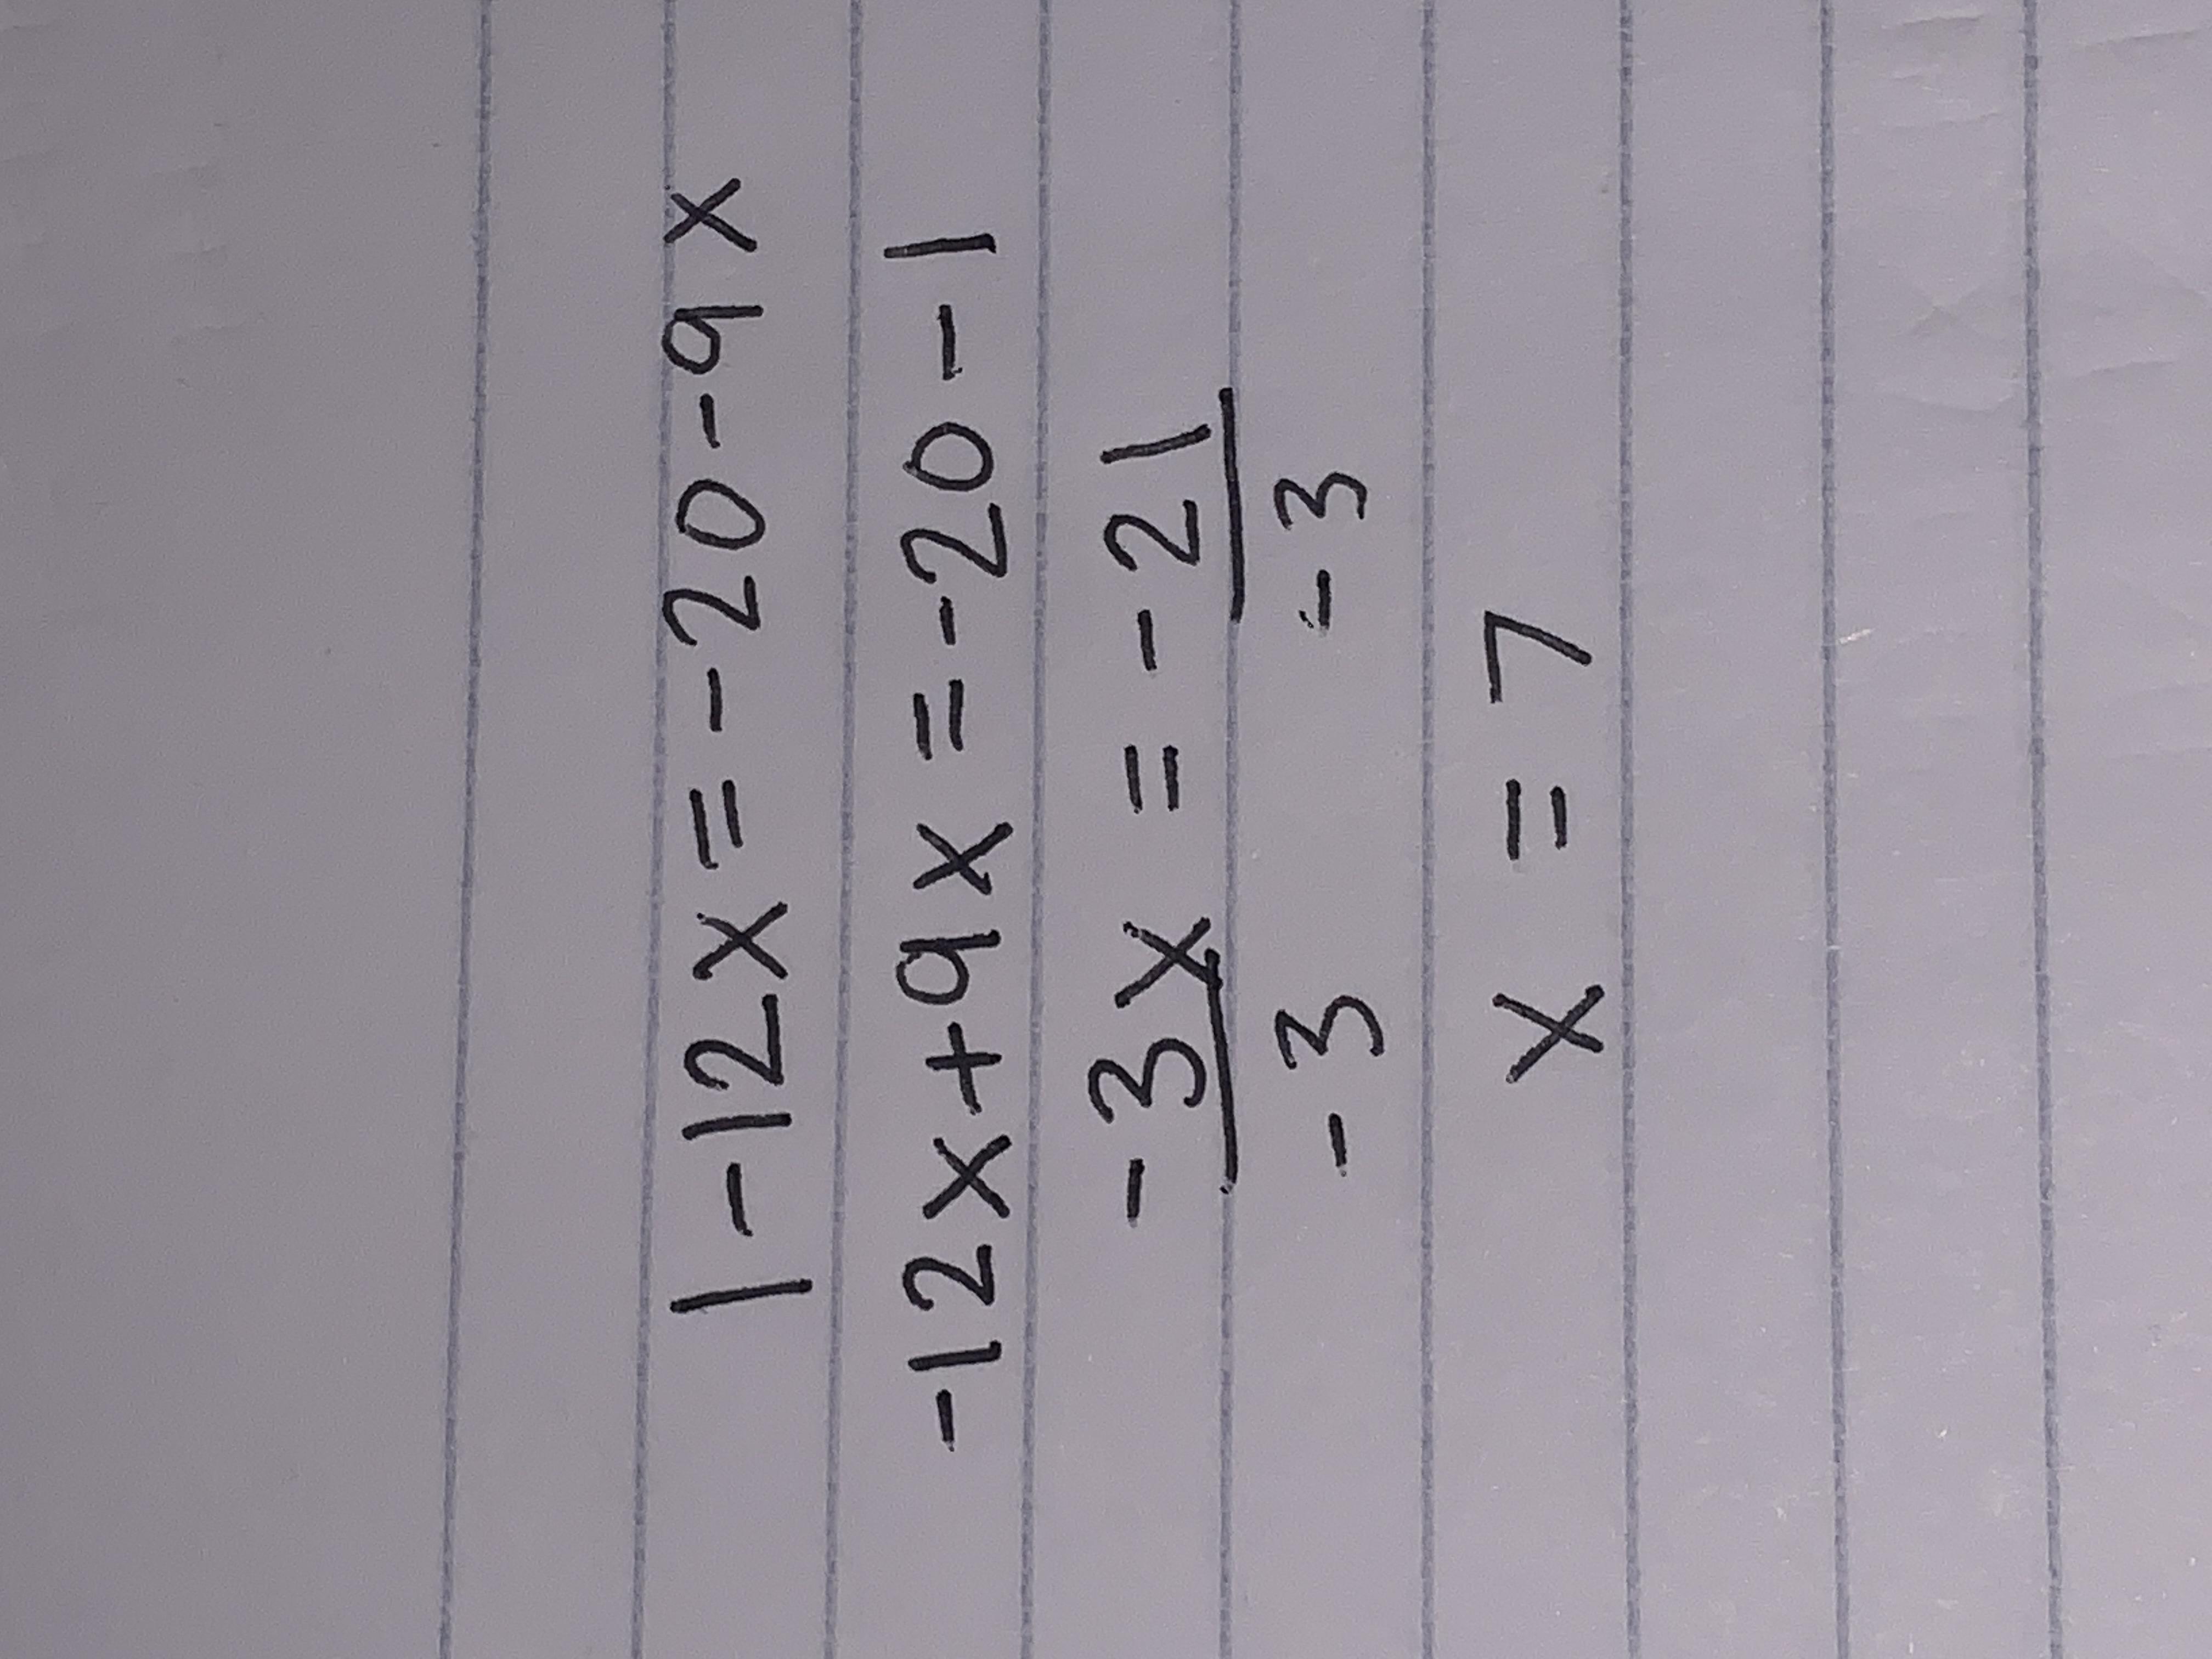 1-12x=-20-9x
-12x+9x=-20-1
-3x = -21
-3 -3
x = 7